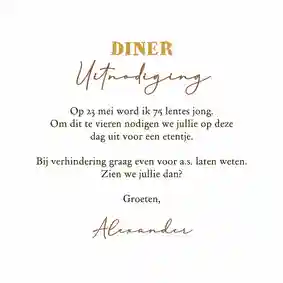 DINER
Uitnodiging
Op 23 mei word ik 75 lentes jong.
Om dit te vieren nodigen we jullie op deze
dag uit voor een etentje.
Bij verhindering graag even voor a.s. laten weten.
Zien we jullie dan?
Groeten,
Alexander